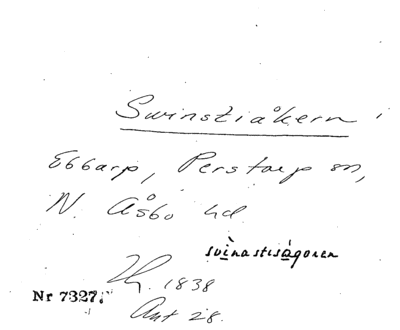 Swinstiåkern
Ebbarp, Perstorp sn,
N. Åsbo hd
svìnastiságoren
Lh. 1838
Nr 7327.
Ant 28.